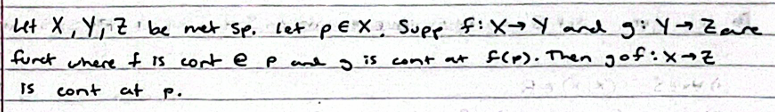 Let X, Y, Z be met sp. Let p ∈ X. Supp f: X → Y and g: Y → Z are
funct where f is cont @ p and g is cont at f(p). Then gof: X → Z
is cont at p.